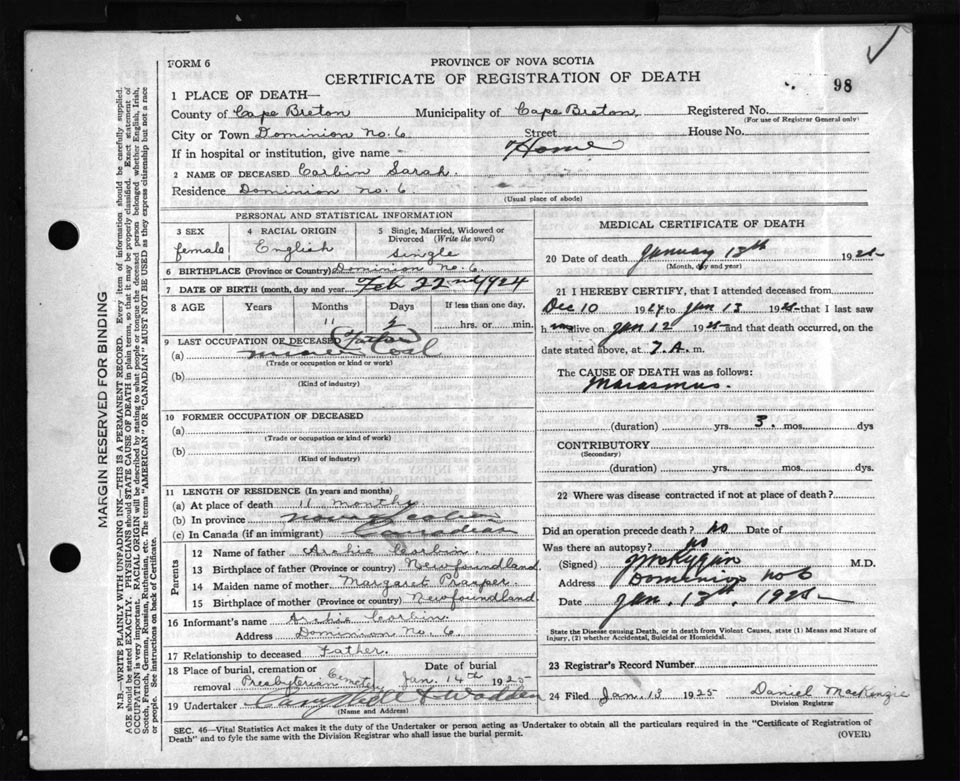 FORM 6
PROVINCE OF NOVA SCOTIA
CERTIFICATE OF REGISTRATION OF DEATH
98
1 PLACE OF DEATH—
County of Cape Breton Municipality of Cape Breton Registered No.
(For use of Registrar General only)
City or Town Dominion No. 6 Street House No.
If in hospital or institution, give name - Home
2 NAME OF DECEASED Corbin Sarah.
Residence Dominion No. 6
(Usual place of abode)
PERSONAL AND STATISTICAL INFORMATION
3 SEX 4 RACIAL ORIGIN 5 Single, Married, Widowed or Divorced (Write the word)
female English Single
6 BIRTHPLACE (Province or Country) Dominion No. 6.
7 DATE OF BIRTH (month, day and year) Feb 22nd 1924
8 AGE Years Months Days If less than one day,
11 2 hrs. or min.
9 LAST OCCUPATION OF DECEASED (Father)
(a) Miner Coal
(Trade or occupation or kind of work)
(b)
(Kind of industry)
10 FORMER OCCUPATION OF DECEASED
(a)
(Trade or occupation or kind of work)
(b)
(Kind of industry)
11 LENGTH OF RESIDENCE (In years and months)
(a) At place of death 11 months
(b) In province Nova Scotia
(c) In Canada (if an immigrant) Canadian
Parents
12 Name of father Archie Corbin.
13 Birthplace of father (Province or country) Newfoundland.
14 Maiden name of mother Margaret
15 Birthplace of mother (Province or country) Newfoundland.
16 Informant's name Archie Corbin
Address Dominion No. 6
17 Relationship to deceased Father.
18 Place of burial, cremation or removal Presbyterian Cemetery Date of burial Jan. 14th 1925
19 Undertaker & Wadden
(Name and Address)
MEDICAL CERTIFICATE OF DEATH
20 Date of death January 13th 1925
(Month, day and year)
21 I HEREBY CERTIFY, that I attended deceased from
Dec 10 1924 to Jan 13 1925 that I last saw
h alive on Jan 12 1925 and that death occurred, on the
date stated above, at 7. A. m.
The CAUSE OF DEATH was as follows:
Marasmus.
(duration) yrs. 3. mos. dys
CONTRIBUTORY
(Secondary)
(duration) yrs. mos. dys.
22 Where was disease contracted if not at place of death?
Did an operation precede death? No Date of
Was there an autopsy? no
(Signed) M.D.
Address Dominion No 6
Date Jan. 13th. 1925
State the Disease causing Death, or in death from Violent Causes, state (1) Means and Nature of
Injury, (2) whether Accidental, Suicidal or Homicidal.
23 Registrar's Record Number
24 Filed Jan. 13 1925 Daniel MacKenzie
Division Registrar
SEC. 46—Vital Statistics Act makes it the duty of the Undertaker or person acting as Undertaker to obtain all the particulars required in the "Certificate of Registration of
Death" and to fyle the same with the Division Registrar who shall issue the burial permit.
(OVER)
MARGIN RESERVED FOR BINDING
N.B.—WRITE PLAINLY WITH UNFADING INK—THIS IS A PERMANENT RECORD. Every item of information should be carefully supplied.
AGE should be stated EXACTLY. PHYSICIANS should STATE CAUSE OF DEATH in plain terms, so that it may be properly classified. Exact statement of
OCCUPATION is very important. RACIAL ORIGIN will be described by stating to what people or tongue the deceased person belonged whether English, Irish,
Scotch, French, German, Russian, Ruthenian, etc. The terms "AMERICAN" OR "CANADIAN" MUST NOT BE USED as they express citizenship but not a race
or people. See instructions on back of Certificate.